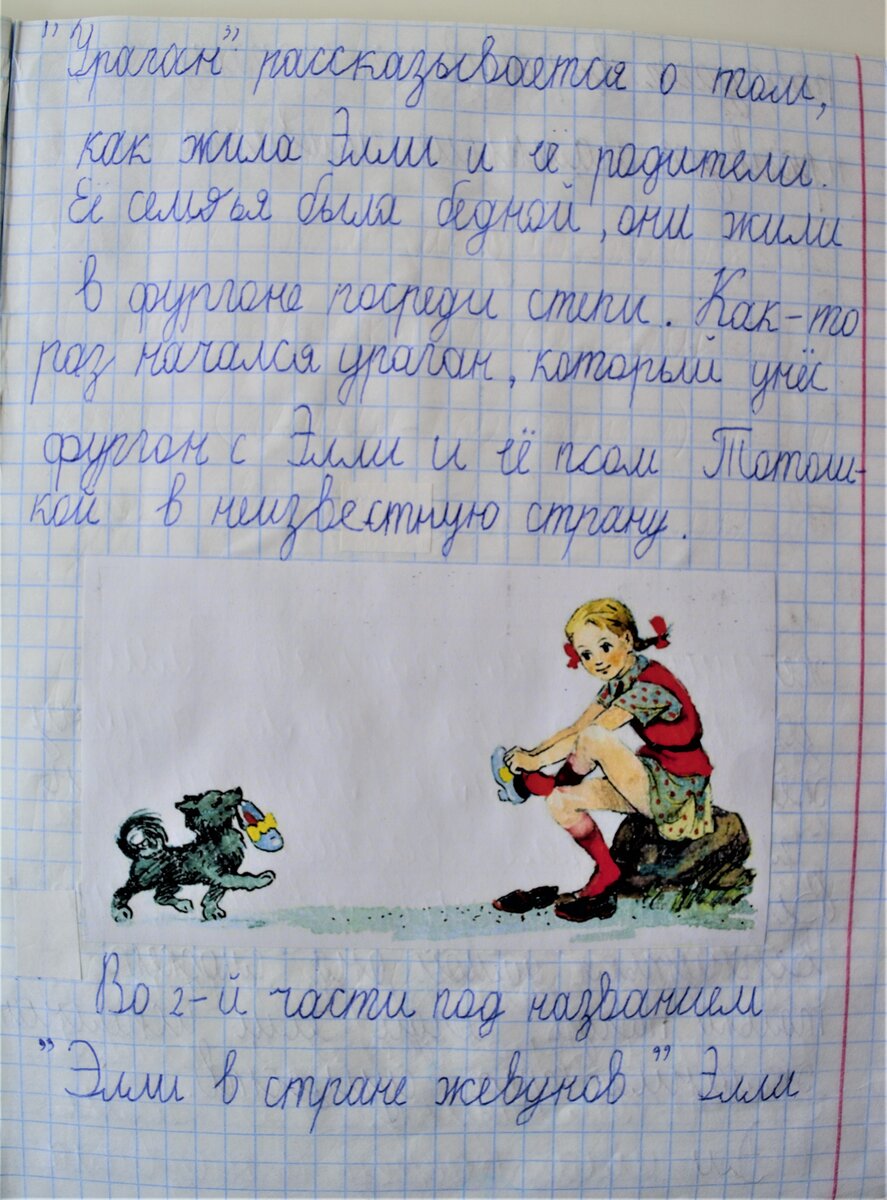 "Ураган" рассказывается о том,
как жила Элли и её родители.
Её семья была бедной, они жили
в фургоне посреди степи. Как-то
раз начался ураган, который унёс
фургон с Элли и её псом Тотош-
кой в неизвестную страну.
Во 2-й части под названием
"Элли в стране жевунов" Элли